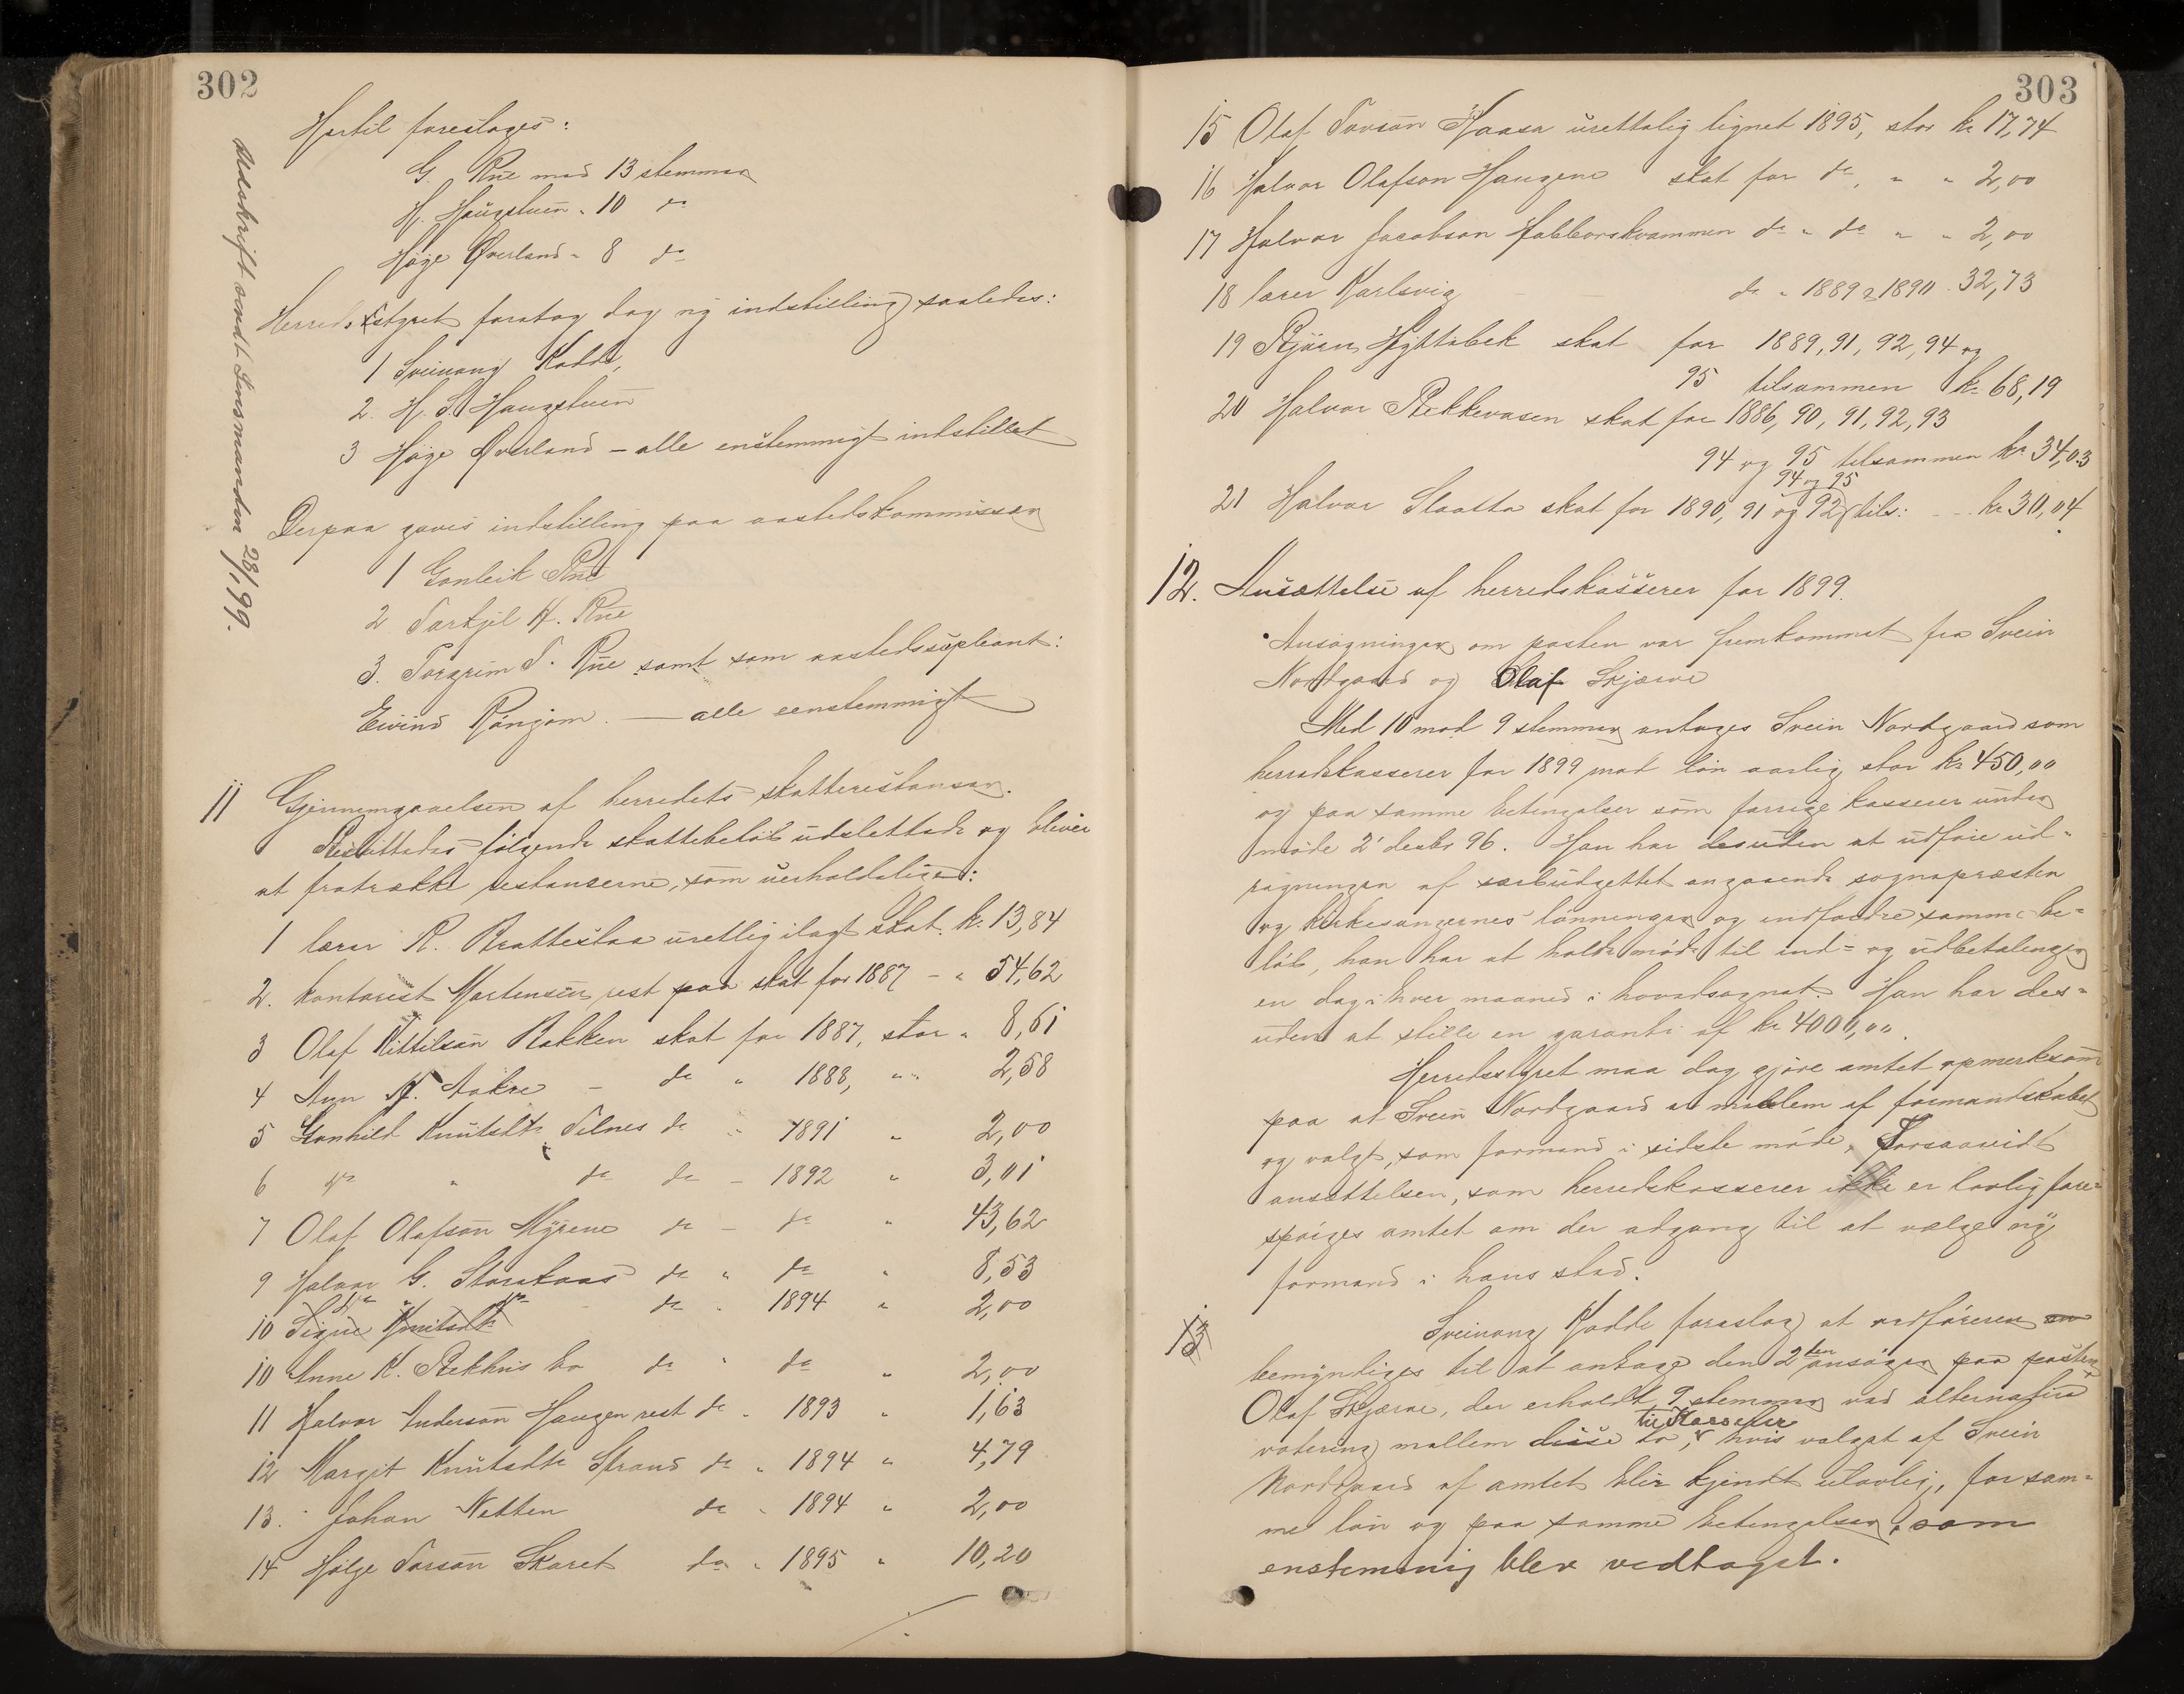 302
Hertil foreslages:
G. Rue med 13 stemmer
H. Haugstuen " 10 do
Høge Øverland " 8 do
Herredsstyret foretog dog ny indstilling saaledes:
1 Sveinong Rodde,
2. H. S. Haugstuen
3 Høge Øverland – alle enstemmigt indstillet
Derpaa gaves indstilling paa aastedskommissær
1 Gonleik Rue
2 Tarkjel H. Rue
3. Torgrim T. Rue samt som aastedssupleant:
Eivind Røngjom. — alle eenstemmigt
Udskrift sendt Lensmanden 28/1 99.
11 Gjennemgaaelsen af herredets skatterestanser.
Besluttedes følgende skattebeløb udslettede og bliver
at fratrække restanserne, som uerholdelige:
1 lærer R. Bratteslaa uretlig ilagt skat. kr. 13,84
2. kontorist Mortensen rest paa skat for 1887 – " 54,62
3 Olaf Kittilsøn Bakken skat for 1887, stor " 8,61
4 Aun A. Aakre – do " 1888, " 2,58
5 Gonhild Knutsdtr Tilnes do " 1891 " 2,00
6 do " do do – 1892 " 3,01
7 Olaf Olafsøn Myrene do – do " 43,62
9 Halvor G. Storekaas do " do " 8,53
10 Signe Knutsdtr do " do do " 1894 " 2,00
10 Anne K. Bekhus bo do " do " 2,00
11 Halvor Andersøn Haugen rest do " 1893 " 1,63
12 Margit Knutsdtr Strand do " 1894 " 4,79
13. Johan Netten do " 1894 " 2,00
14 Hølge Torsøn Skaret do " 1895 " 10,20
303
15 Olaf Tovsøn Haasa urettelig lignet 1895, stor kr 17,74
16 Halvor Olafson Haugene skat for do, " " 2,00
17 Halvor Jacobson Habborskvammen do " do " " 2,00
18 lærer Karlsvig do " 1889 & 1890 " 32,73
19 Bjørn Hyttebek skat for 1889, 91, 92, 94 og
95 tilsammen kr. 68,19
20 Halvor Bekkevasen skat for 1886, 90, 91, 92, 93
94 og 95 tilsammen kr. 34,03
94 og 95
21 Halvor Slaatta skat for 1890, 91 og 92 tils: – – kr 30,04
12. Ansættelse af herredskasserer for 1899.
Ansøgninger om posten var fremkommet fra Svein
Nordgaard og Olaf Skjærve
Med 10 mod 9 stemmer antages Svein Nordgaard som
herredskasserer for 1899 mod løn aarlig stor kr 450,00
og paa samme betingelser som forrige kasserer under
møde 2' decbr 96. Han har desuden at udføre ud-
regningen af særbudgettet angaaende sognepræsten
og kirkesangernes lønninger og indfordre samme be-
løb, han har at holde møde til ind- og udbetalinger
en dag i hver maaned i hovedsognet. Han har des-
uden at stille en garanti af kr 4000,00.
Herredsstyret maa dog gjøre amtet opmerksom
paa at Svein Nordgaard er medlem af formandskabet
og valgt, som formand i sidste møde. Forsaavidt
ansættelsen, som herredskasserer ikke er lovlig fore-
spørges amtet om der adgang til at vælge ny
formand i hans sted.
13 Sveinong Rodde foreslog at ordføreren
bemyndiges til at antage den 2den ansøger paa posten
Olaf Skjærve, der erholdt 9 stemmer ved alternativ
til Kasserer
votering mellem disse to, hvis valget af Svein
Nordgaard af amtet blir kjendt ulovlig, for sam-
me løn og paa samme betingelser, som
enstemmig blev vedtaget.